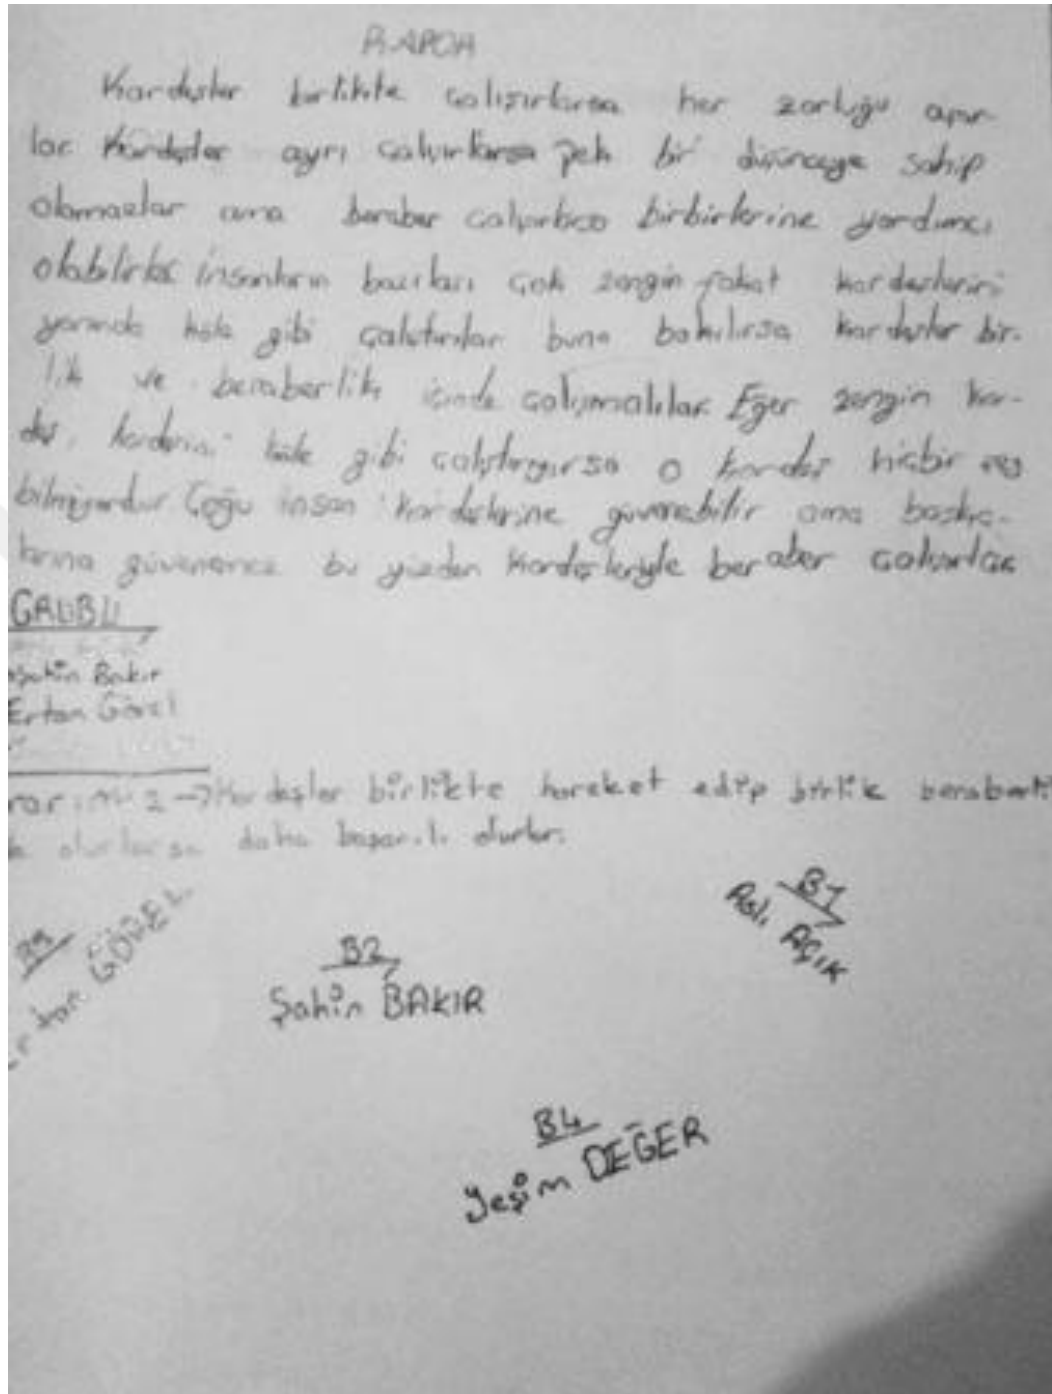 RAPOR
Kardeşler birlikte çalışırlarsa her zorluğu aşır-
lar Kardeşler ayrı çalışırlarsa pek bir düşünceye sahip
olamazlar ama beraber çalışırlarsa birbirlerine yardımcı
olabilirler insanların bazıları çok zengin fakat kardeşlerini
yanında köle gibi çalıştırırlar buna bakılırsa kardeşler bir-
lik ve beraberlik içinde çalışmalılar Eğer zengin kar-
deş, kardeşini köle gibi çalıştırıyorsa o kardeş hiçbir şey
bilmiyordur Çoğu insan kardeşlerine güvenebilir ama başka-
larına güvenemez bu yüzden Kardeşleriyle beraber çalışırlar
GRUBU
Şahin Bakır
Ertan Güzel
2 → Kardeşler birlikte hareket edip birlik beraberli
olurlarsa daha başarılı olurlar.
B1
Aslı AÇIK
B2
Şahin BAKIR
B4
Yeşim DEĞER